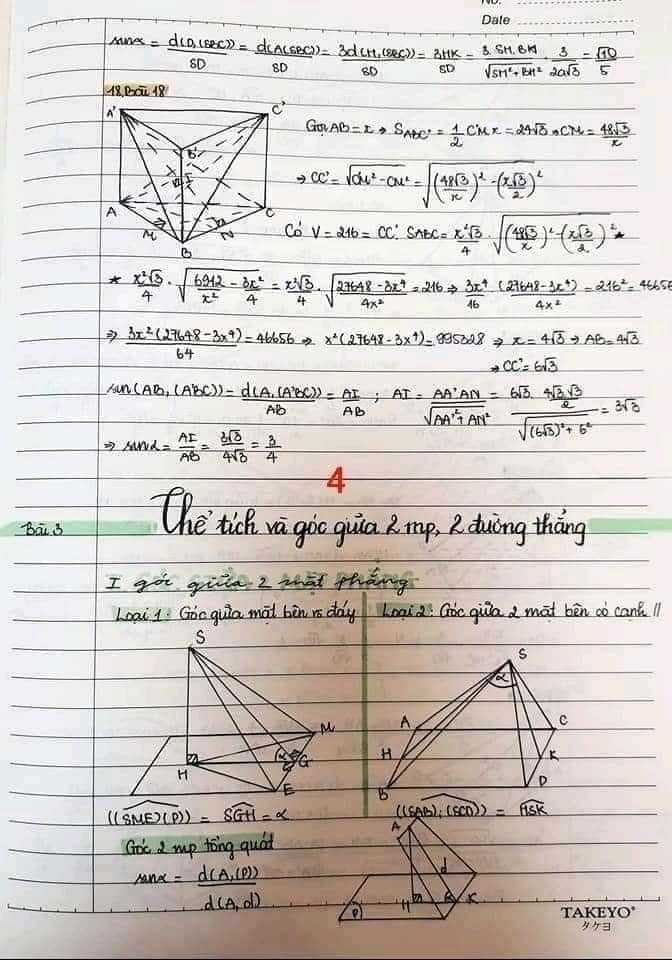 No.
Date
sinα = d(D,(SBC))/SD = d(A,(SBC))/SD = 3d(H,(SBC))/SD = 3HK/SD = 3.SH.BH/√(SH²+BH²) . 3/(2a√3) = √10/5
18, Bài 18
A' C' B' I A M B N C
Gọi AB = x ⇒ S_ABC' = 1/2 C'M x = 24√3 ⇒ C'M = 48√3/x
⇒ CC' = √(C'M² - CM²) = √((48√3/x)² - (x√3/2)²)
Có V = 216 = CC'. S_ABC = x²√3/4 . √((48√3/x)² - (x√3/2)²) *
* x²√3/4 . √(6912/x² - 3x²/4) = x²√3/4 . √((27648 - 3x⁴)/4x²) = 216 ⇒ 3x⁴/16 . (27648 - 3x⁴)/4x² = 216² = 46656
⇒ 3x²(27648 - 3x⁴)/64 = 46656 ⇒ x²(27648 - 3x⁴) = 995328 ⇒ x = 4√3 ⇒ AB = 4√3
⇒ CC' = 6√3
sin(AB, (A'BC)) = d(A, (A'BC))/AB = AI/AB ; AI = AA'.AN/√(AA'² + AN²) = 6√3 . 4√3.√3/2 / √((6√3)² + 6²) = 3√3
⇒ sinα = AI/AB = 3√3/4√3 = 3/4
4
Bài 3 Thể tích và góc giữa 2 mp, 2 đường thẳng
I góc giữa 2 mặt phẳng
Loại 1: Góc giữa mặt bên vs đáy
S M H α G E
((SME),(P)) = SGH = α
Loại 2: Góc giữa 2 mặt bên có cạnh //
S α A C H K B D
((SAB);(SCD)) = HSK
Góc 2 mp tổng quát
sinα = d(A,(P))/d(A,d)
A d H K P
TAKEYO®
タケヨ